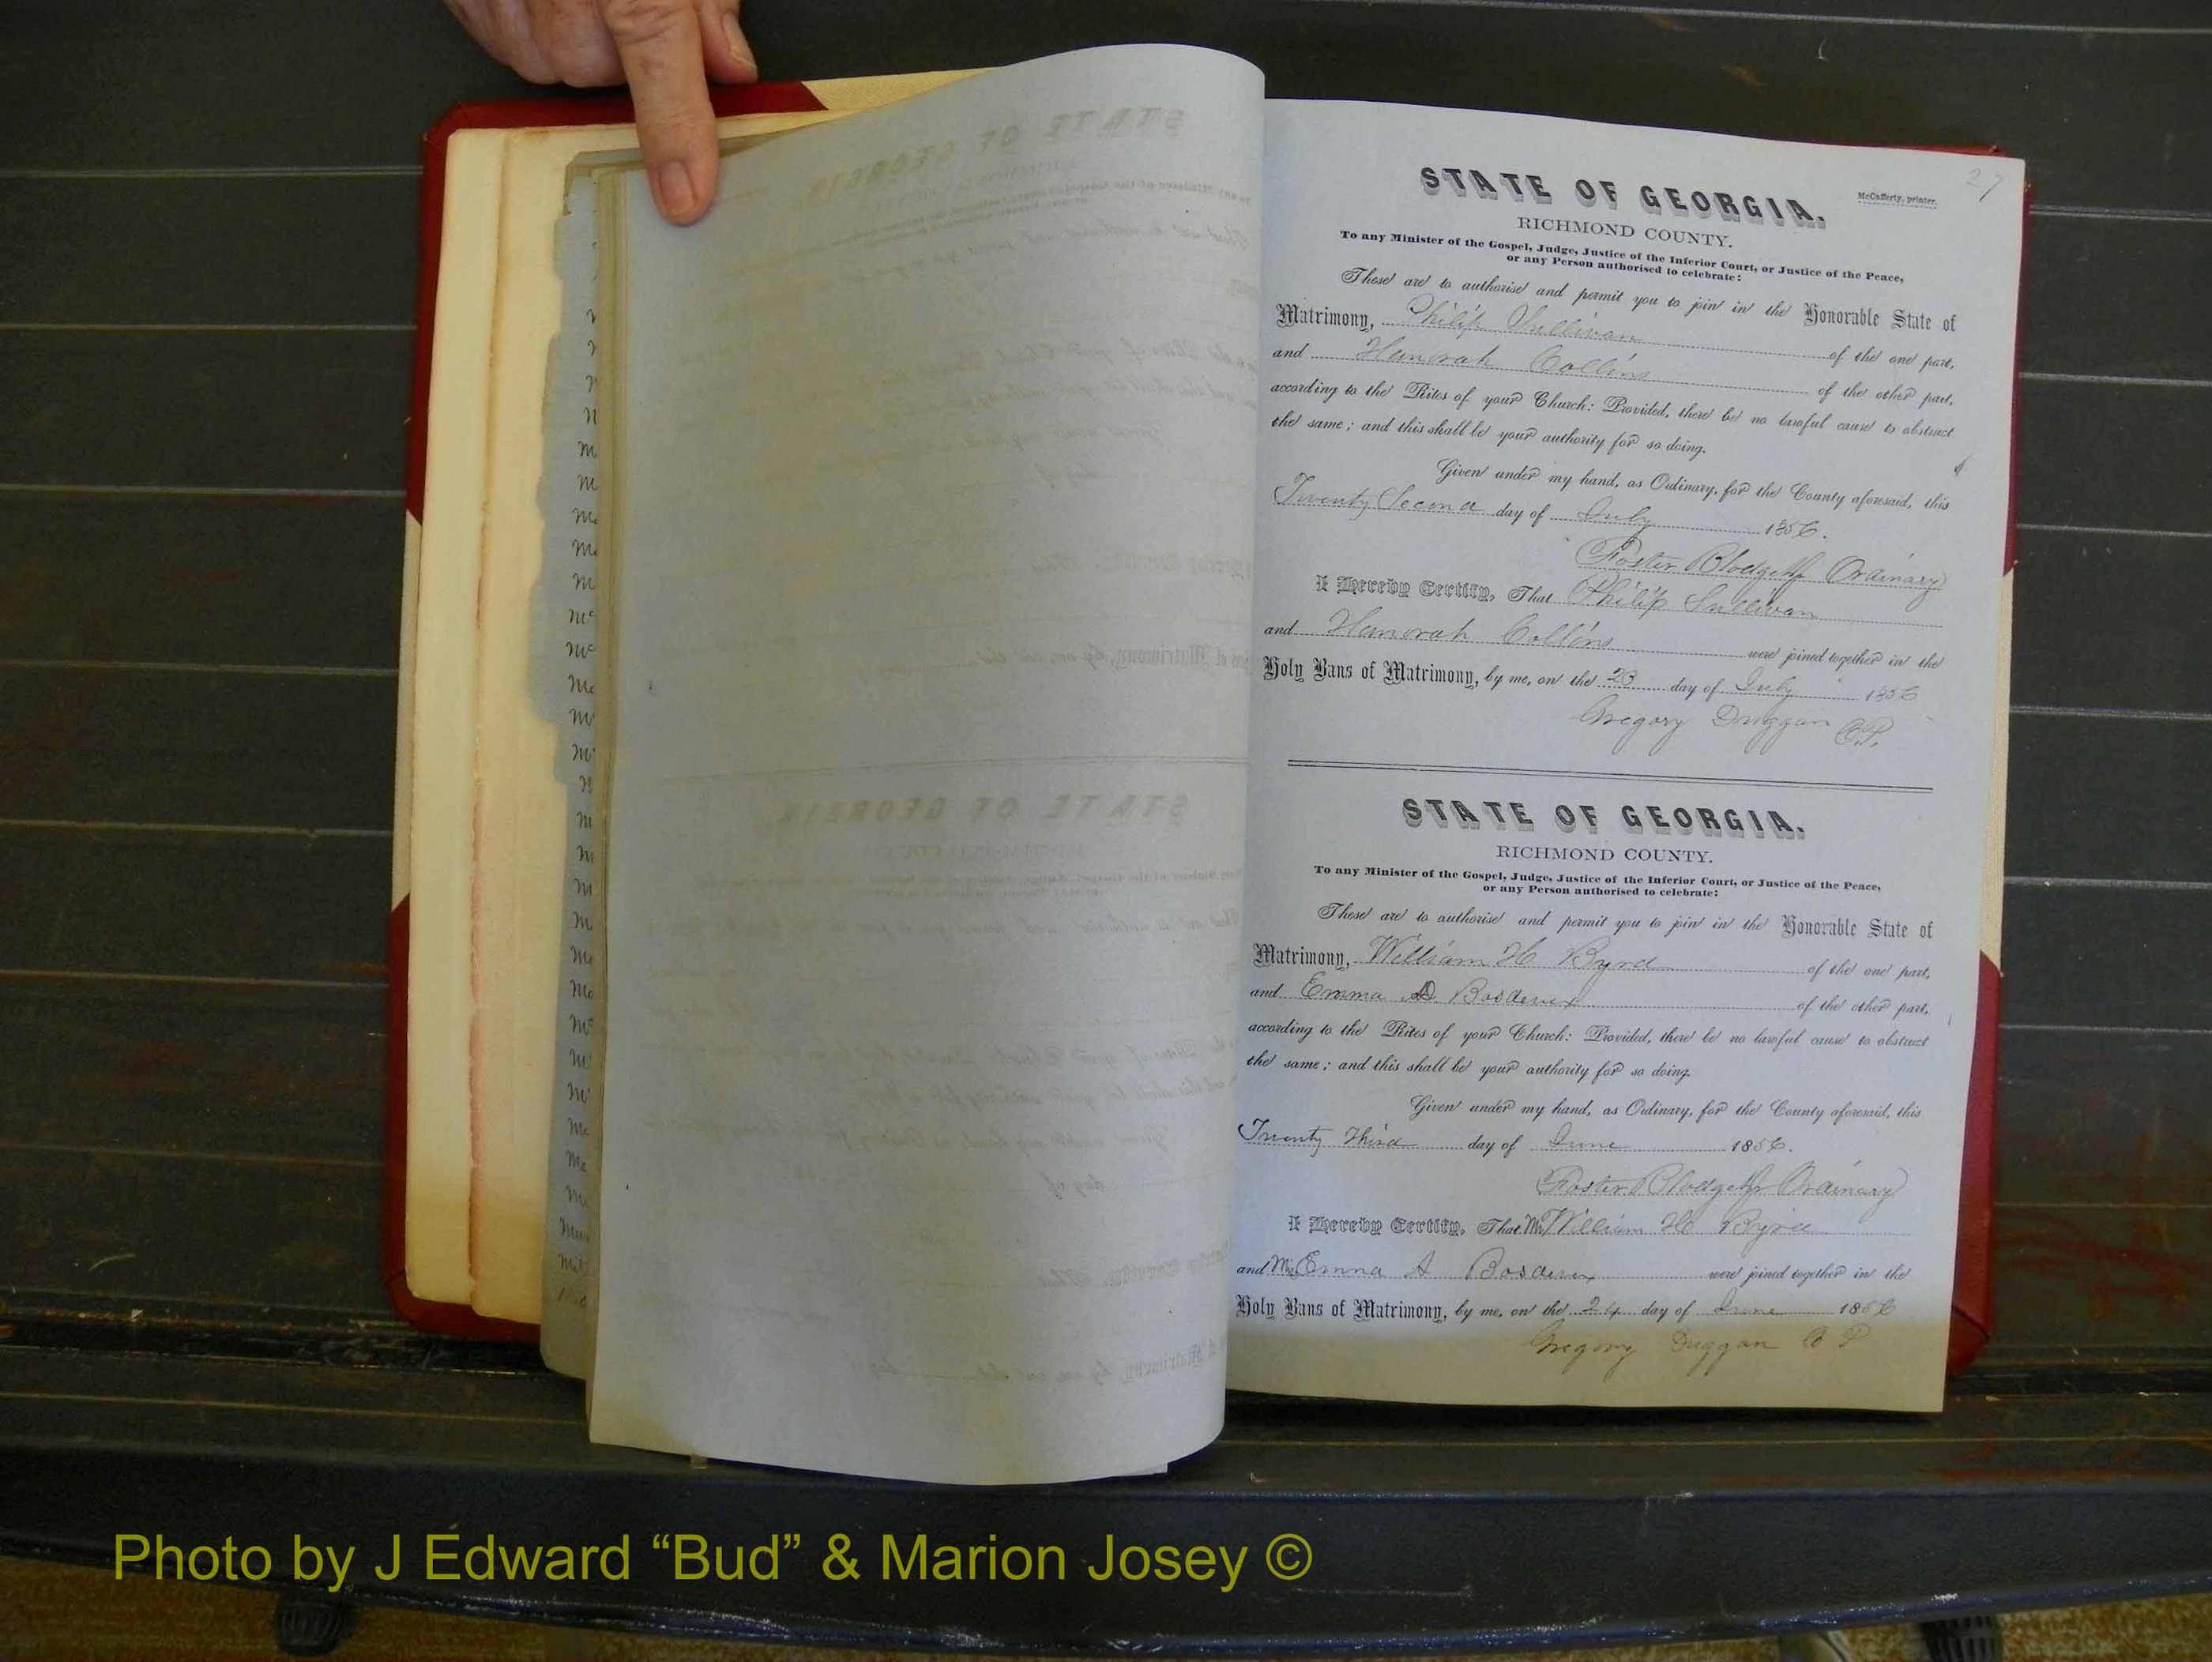 27
STATE OF GEORGIA.
McCafferty, printer.
RICHMOND COUNTY.
To any Minister of the Gospel, Judge, Justice of the Inferior Court, or Justice of the Peace,
or any Person authorised to celebrate:
These are to authorise and permit you to join in the Honorable State of
Matrimony, Philip Sullivan of the one part,
and Hanorah Collins of the other part,
according to the Rites of your Church: Provided, there be no lawful cause to obstruct
the same; and this shall be your authority for so doing.
Given under my hand, as Ordinary, for the County aforesaid, this
Twenty Second day of July 1856.
Foster Blodget Jr Ordinary
I Hereby Certify, That Philip Sullivan
and Hanorah Collins were joined together in the
Holy Bans of Matrimony, by me, on the 23 day of July 1856
Gregory Duggan C.P.
STATE OF GEORGIA.
RICHMOND COUNTY.
To any Minister of the Gospel, Judge, Justice of the Inferior Court, or Justice of the Peace,
or any Person authorised to celebrate:
These are to authorise and permit you to join in the Honorable State of
Matrimony, William H Byrd of the one part,
and Emma Bosdevex of the other part,
according to the Rites of your Church: Provided, there be no lawful cause to obstruct
the same; and this shall be your authority for so doing.
Given under my hand, as Ordinary, for the County aforesaid, this
Twenty Third day of June 1856.
Foster Blodget Jr Ordinary
I Hereby Certify, That Mr William H Byrd
and Miss Emma A Bosdevex were joined together in the
Holy Bans of Matrimony, by me, on the 24 day of June 1856
Gregory Duggan C P
Photo by J Edward “Bud” & Marion Josey ©